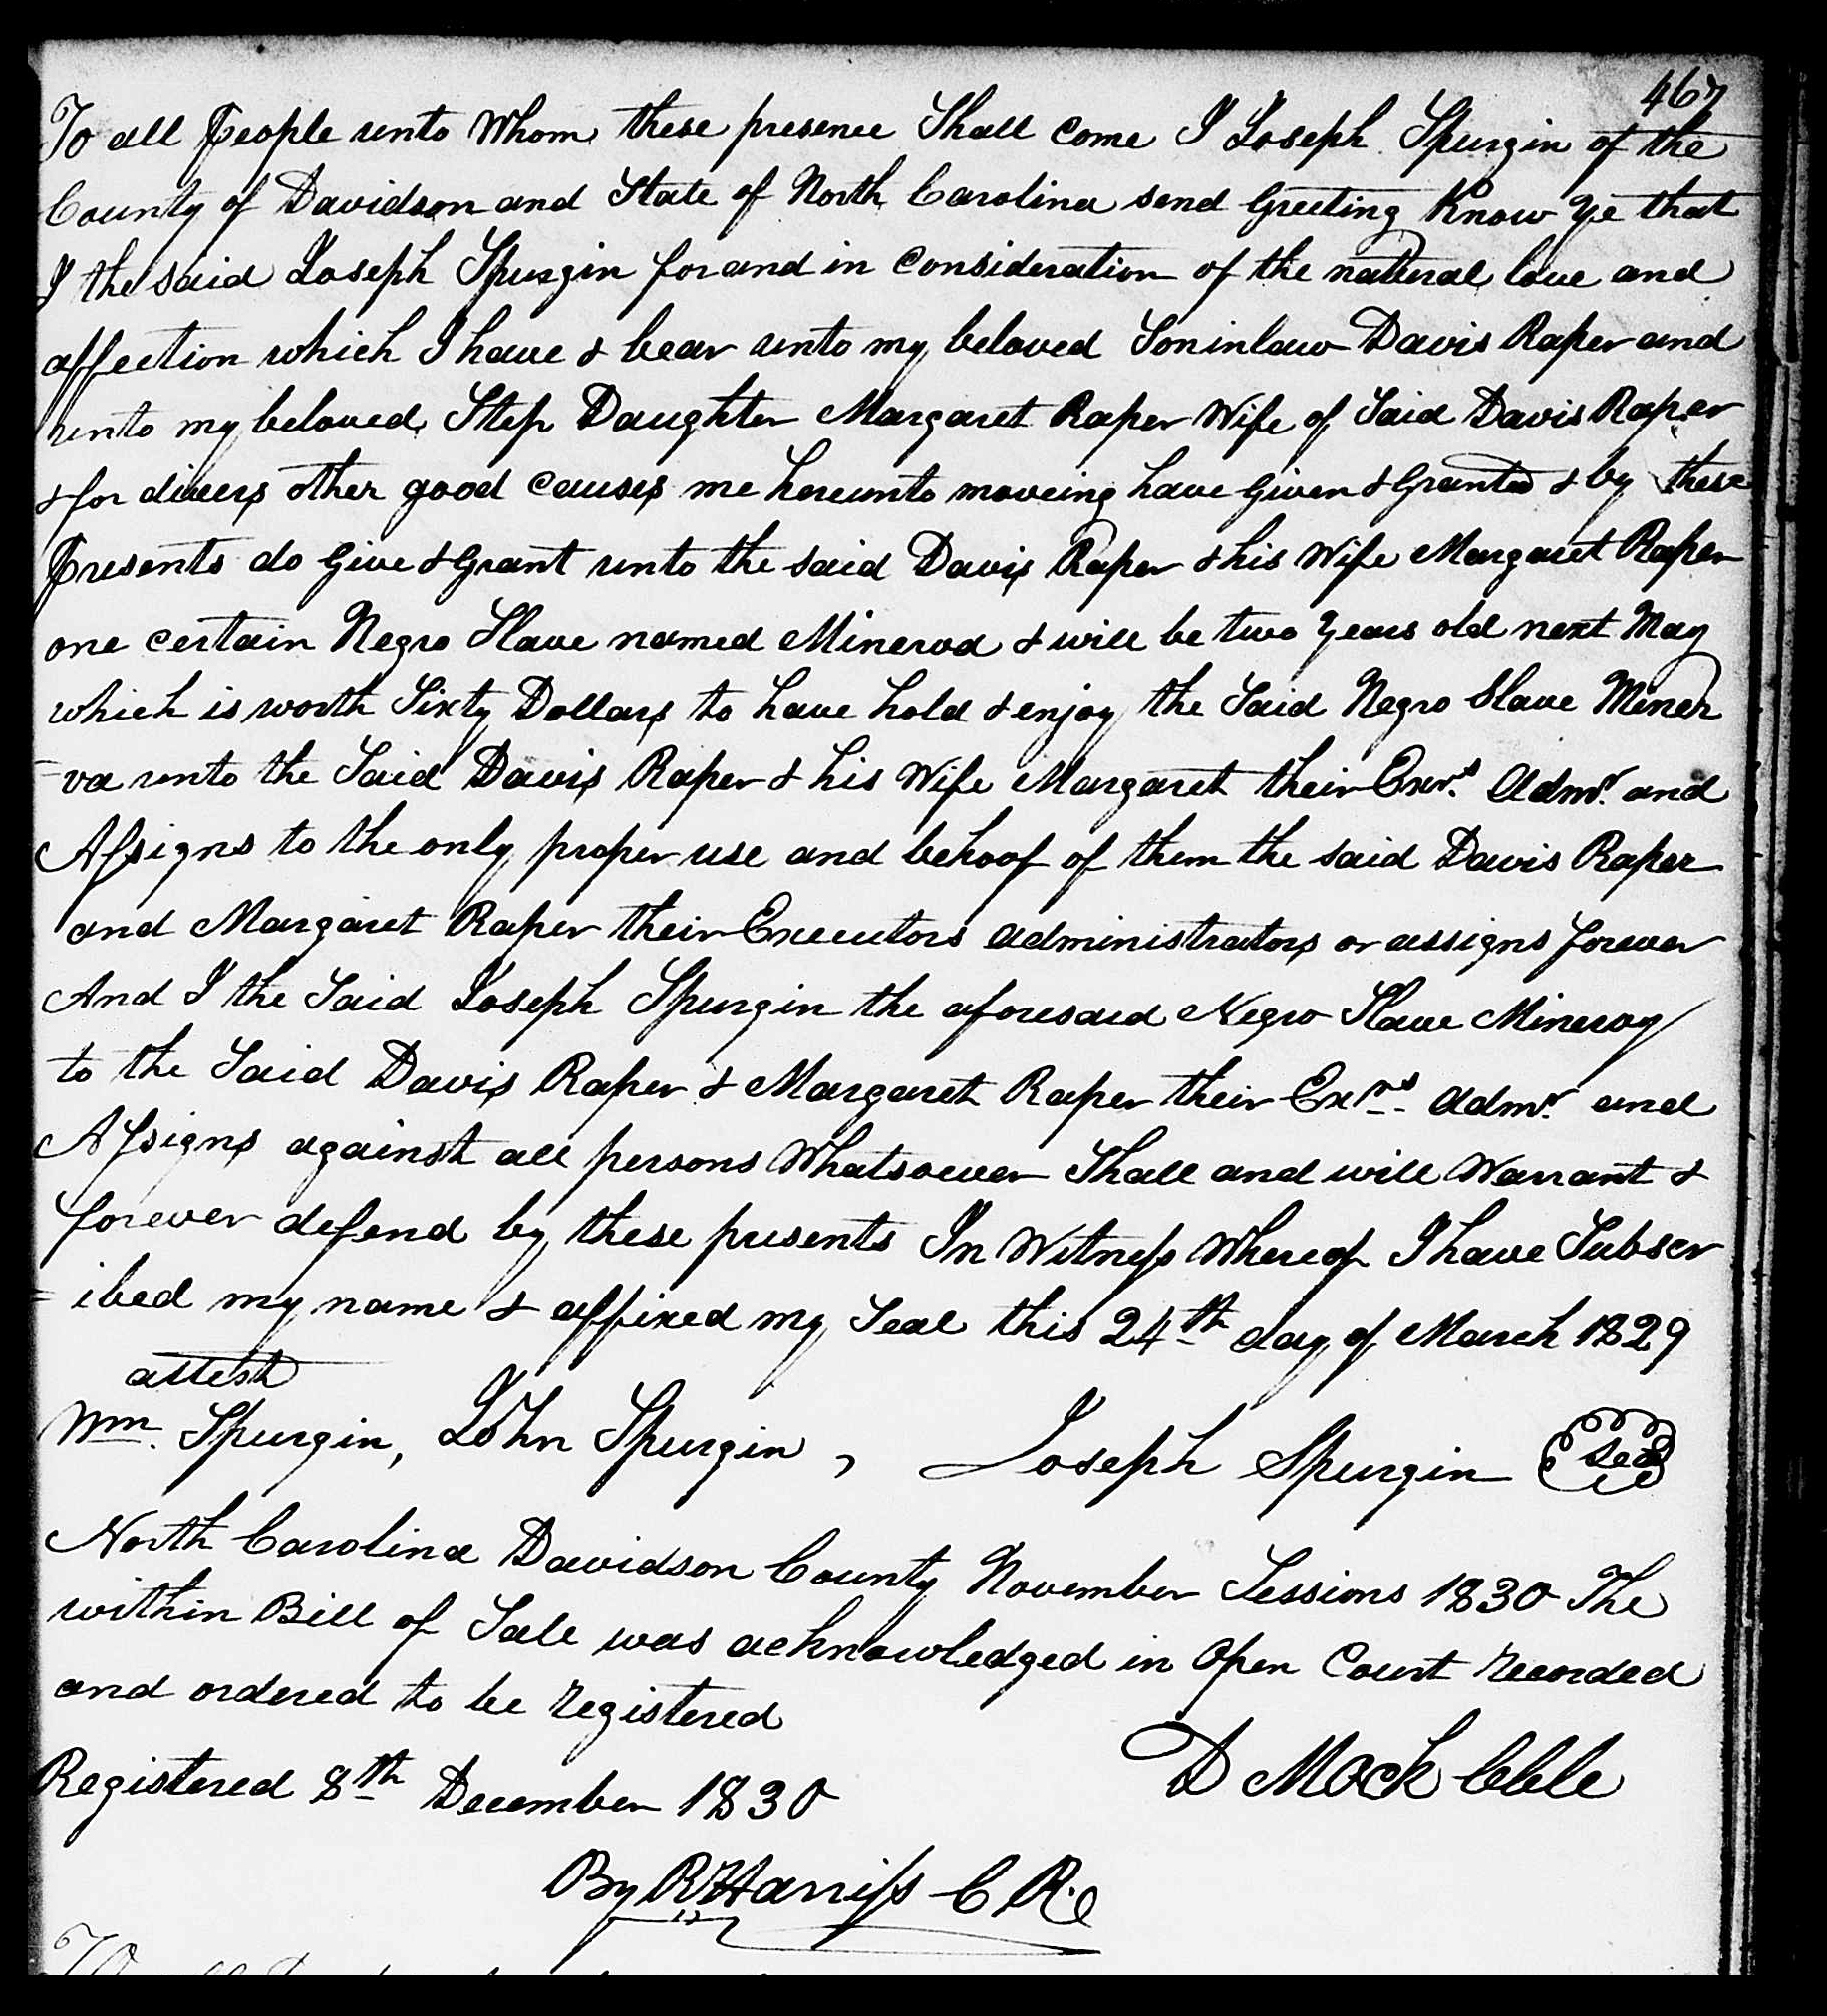 467
To all People unto Whom these presence Shall Come I Joseph Spurgin of the
County of Davidson and State of North Carolina send Greeting Know Ye that
I the said Joseph Spurgin for and in Consideration of the natural love and
affection which I have & bear unto my beloved Soninlaw Davis Raper and
unto my beloved Step Daughter Margaret Raper Wife of Said Davis Raper
& for divers other good Causes me hereunto moveing have Given & Granted & by these
Presents do Give & Grant unto the said Davis Raper & his Wife Margaret Raper
one certain Negro Slave named Minerva & will be two Years old next May
which is worth Sixty Dollars to have hold & enjoy the Said Negro Slave Miner
=va unto the Said Davis Raper & his Wife Margaret their Exrs. Admr. and
Assigns to the only proper use and behoof of them the said Davis Raper
and Margaret Raper their Executors administrators or assigns forever
And I the Said Joseph Spurgin the aforesaid Negro Slave Minervy
to the Said Davis Raper & Margaret Raper their Exrs. Admr. and
Assigns against all persons Whatsoever Shall and will Warrant &
forever defend by these presents In Witness Whereof I have Subscr
=ibed my name & affixed my Seal this 24th day of March 1829
attest
Wm. Spurgin, John Spurgin, Joseph Spurgin Seal
North Carolina Davidson County November Sessions 1830 The
within Bill of Sale was acknowledged in Open Court recorded
and ordered to be registered
D Mock
Registered 8th December 1830
By R Harriss C R.